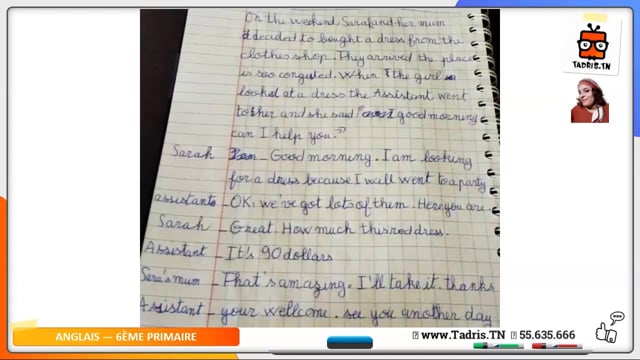 On the weekend, Sara and her mum
decided to bought a dress from the
clothes shop. They arrived the place
is soo congested. When the girl
looked at a dress the Assistant went
to her and she said "good morning
can I help you?"
Sarah - Good morning. I am looking
for a dress because I wall went to a party
assistant - OK, we've got lots of them. Here you are.
Sarah - Great. How much this red dress.
Assistant - It's 90 dollars
Sara's mum - That's amazing. I'll take it. thanks
Assistant - your wellcome. see you another day
TADRIS.TN
ANGLAIS — 6ÈME PRIMAIRE
www.Tadris.TN 55.635.666